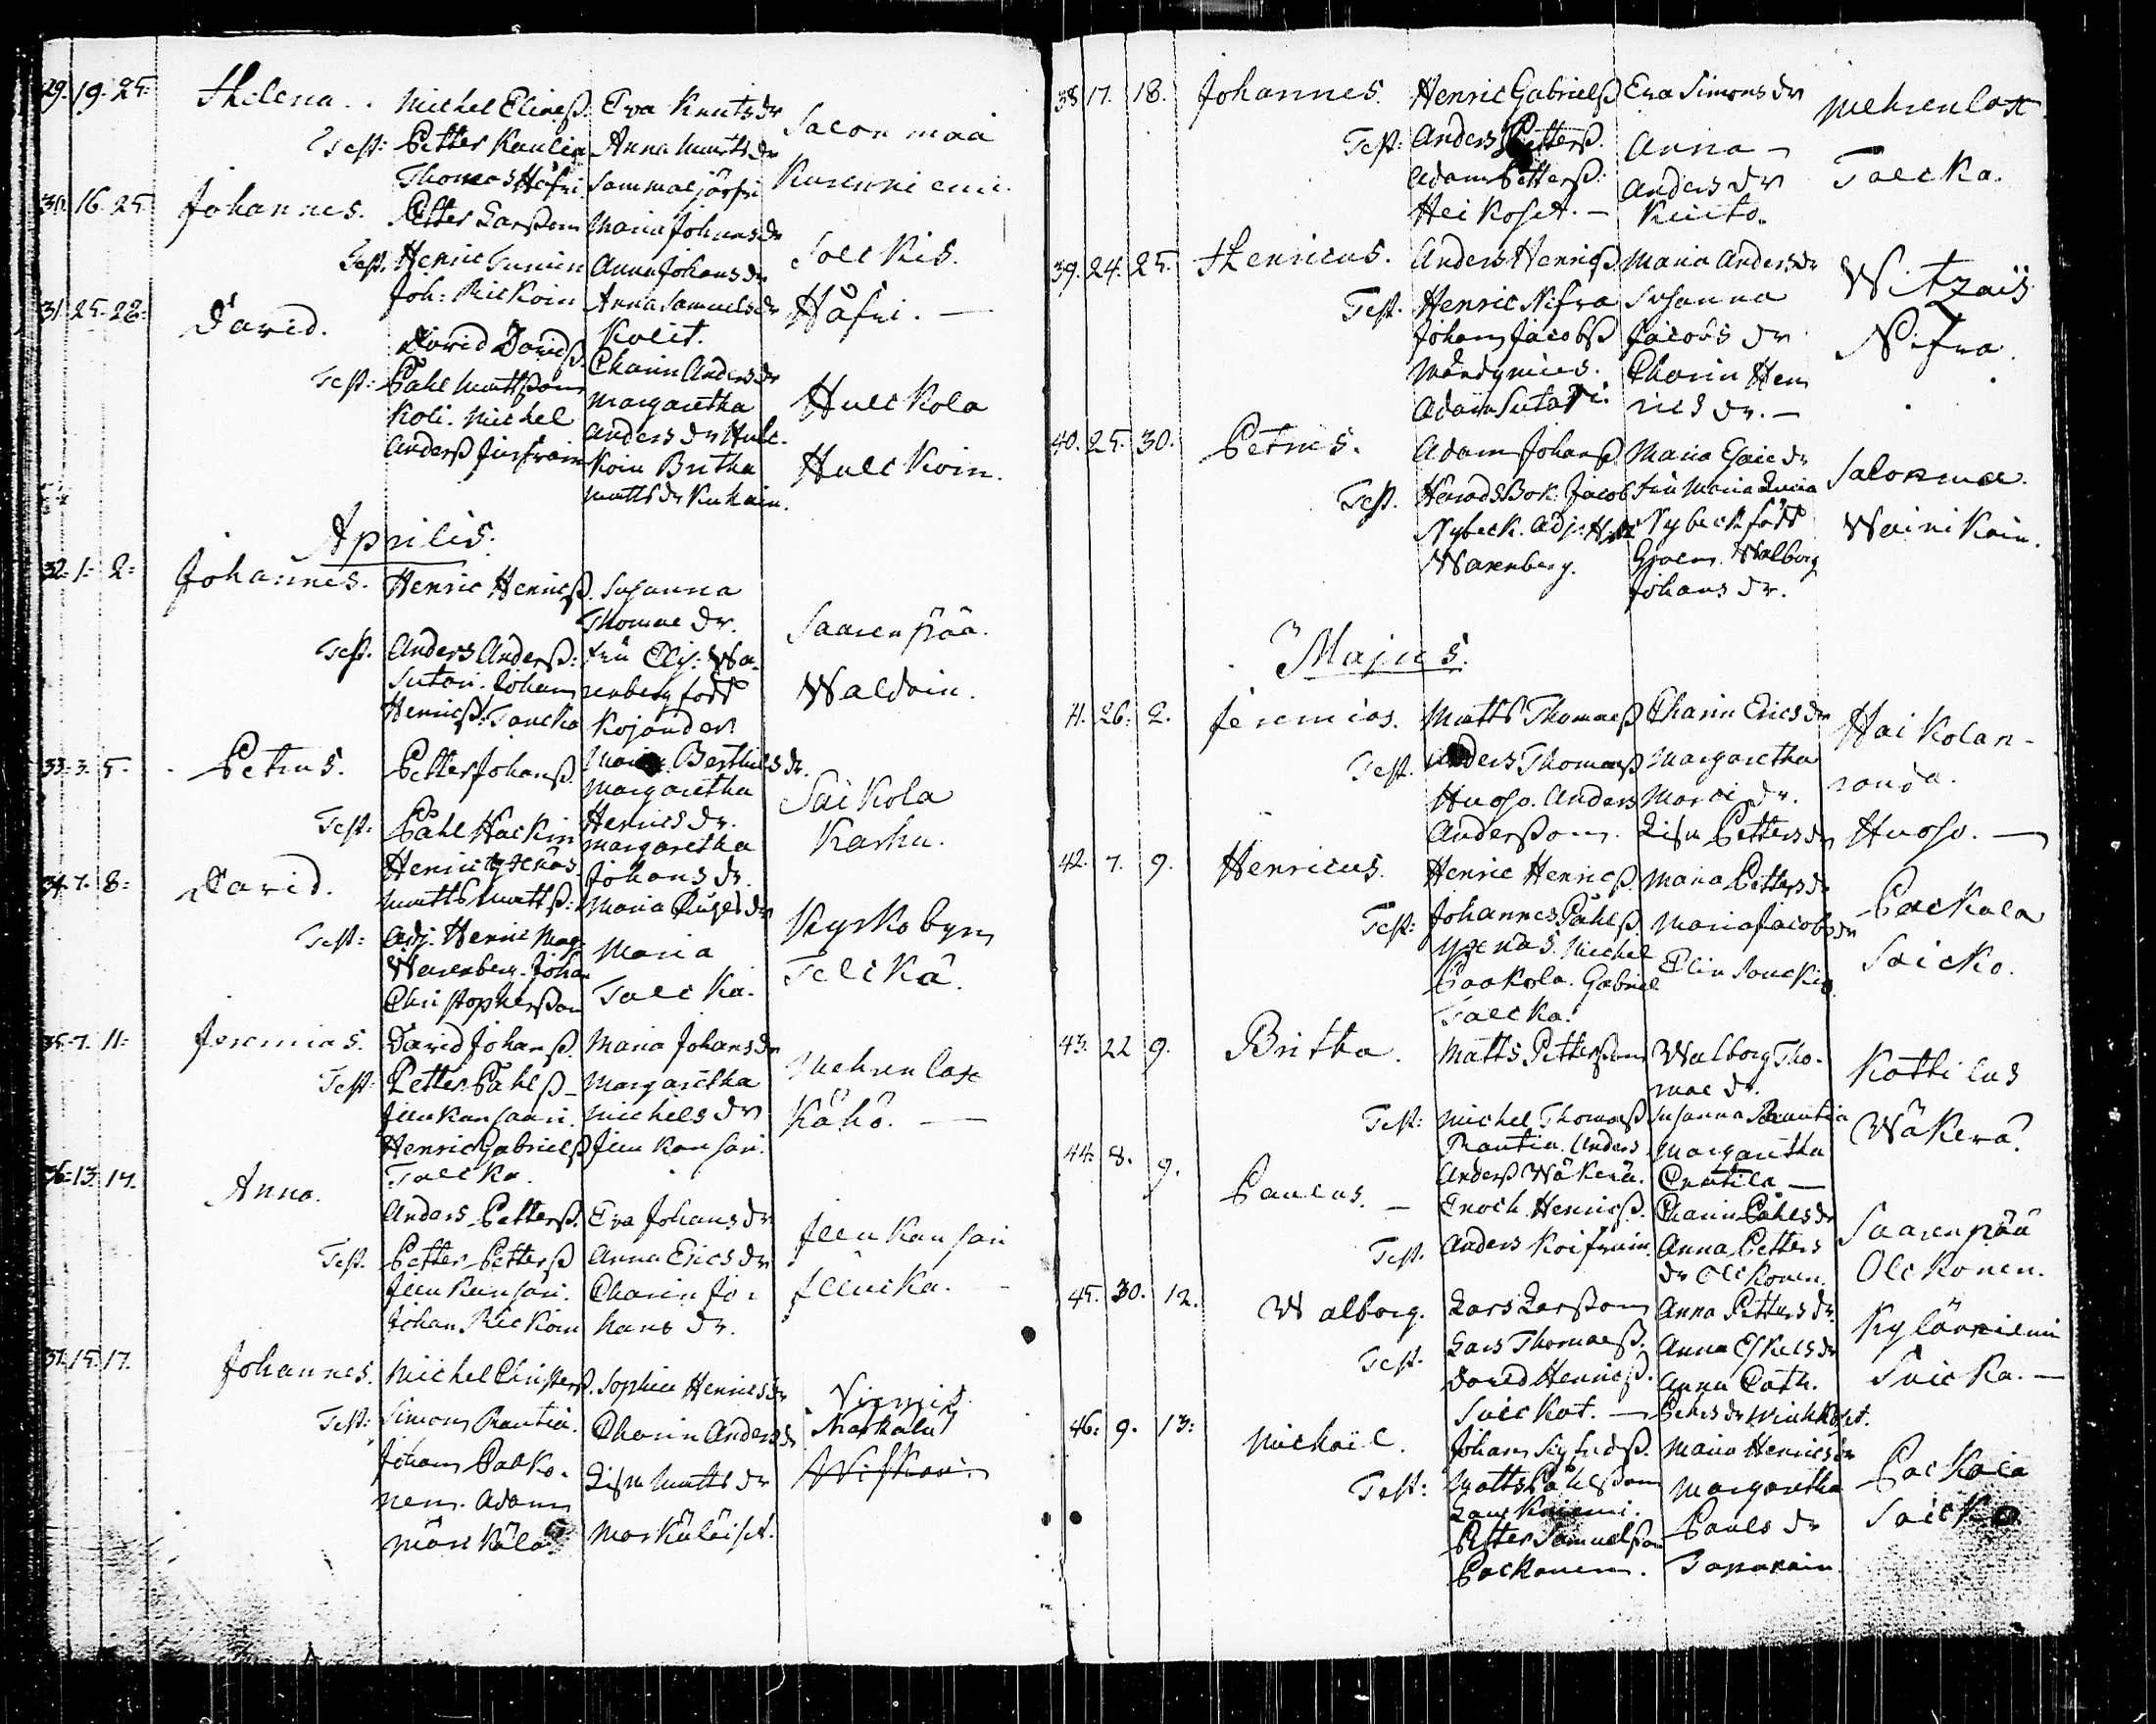 29. 19. 25. Helena. Michel Elineß. Eva Knutsdr Salon maa
Test: Petter Kaulia Anna Mattsdr Kurenniemi.
Thomas Håfri. Sammaljärfvi
30. 16. 25. Johannes. Petter Larßon Maria Johansdr Solckis.
Test. Henric Tunnin Anna Johansdr
Joh: Rickoin Anna Samuelsdr Håfri. —
31. 25. 28. David. David Davidß. Kolit.
Charin Andersdr
Test: Påhl Mattsßon Margaretha Hulckola
Koli. Michel Anders dr Hulc-
Anderß koin Britha Hulckoin.
Matts dr Kuhain.
Aprilis.
32. 1. 2. Johannes. Henric Henricß. Susanna
Thomae dr. Saarenpää.
Test. Anders Anderß. fru Elis: Wa-
Sutari. Johan renberg född Waldoin.
Henricß: Toncka Kojander
33. 3. 5. Petrus. Petter Johanß. Maria Berthilsdr.
Margaretha Saikola
Test: Påhl Hackin Henrics dr. Karhu.
Henric Yxenäs Margaretha
Johans dr.
34. 7. 8. David. Matts Mattsß. Maria Kyrkobyn
Test: Adj. Henric Mag. Maria Telckä.
Warenberg. Johan
Christopherßon Talcka.
35. 7. 11. Jeremias. David Johanß. Maria Johansdr Mehrenlax
Test: Petter Påhlß — Margaretha
Jeenkansaari. Michels dr Kähö. —
Henric Gabrielß Jeenkansari.
Talcka.
36. 13. 14. Anna. Anders Petterß. Eva Johansdr Jeenkansari
Test. Petter Petterß Anna Erics dr
Jeenkansari. Charin Jo-
Johan Rickoin hans dr.
37. 15. 17. Johannes. Michel Christerß. Sophia Henricsdr
Test: Simon Rautia. Charin Andersdr
Johan Palko- Lisa Matts dr
nen. Adam
Märkälä Markäläiset.
38 17. 18. Johannes. Henric Gabrielß Eva Simons dr Mehrenlax
Test: Anders Petterß. Anna —
Adam Petterß: Anders dr Talcka.
Heikoset. — Kuito.
39. 24. 25. Henricus. Anders Henricß Maria Andersdr Witzaïs
Test. Henric Nifra Susanna
Johan Jacobß Jacobs dr Nifra.
Charin Hen
Adam Sutari ries dr. —
40. 25. 30. Petrus. Adam Johanß. Maria Esaiedr Salonmae.
Test. HäradsBok. Jacob fru Maria Lucia
Nybeck. Adj: Nybeck född Wainikain.
Warenberg. Walborg
Johans dr.
Majus.
41. 26. 2. Jeremias. Matts Thomaeß Charin Ericsdr Haikolan-
Test. Anders Thomaeß Margaretha randa.
Huoso. Anders Marci dr.
Anderßon. Lisa Pettersdr Huoso. —
42. 7. 9. Henricus. Henric Henricß. Maria Pettersdr Packala
Test: Johannes Påhlß Maria Jacobsdr
Yxenäs. Michel Saicko.
Paakola. Gabriel Elin Sonckio
Talcka.
43. 22 9. Britha. Matts Petterßon Walborg Tho- Kottilus
mae dr.
Test: Michel Thomaeß Susanna Rautia Wäkerä.
Rautia. Anders Margaretha
Anderß Wäkerä.
44. 8. 9. Paulus. — Enoch Henricß. Charin Påhlsdr Saarenpää
Test. Anders Koifvain. Anna Petters
dr Olckonen. Olckonen.
45. 30. 12. Walborg. Lars Larßon Anna Pettersdr. Kyläniemi
Test. Lars Thomaeß. Anna Eskelsdr
David Henricß. Anna Cath. Suicka. —
Suickat. —
46. 9. 13: Michaël. Johan Sigfridß. Maria Henricsdr Packala
Test: Matts Påhlßon Margaretha
Lauckniemi. Saicko
Petter Samuelßon Pauls dr
Packanen. Taparain.